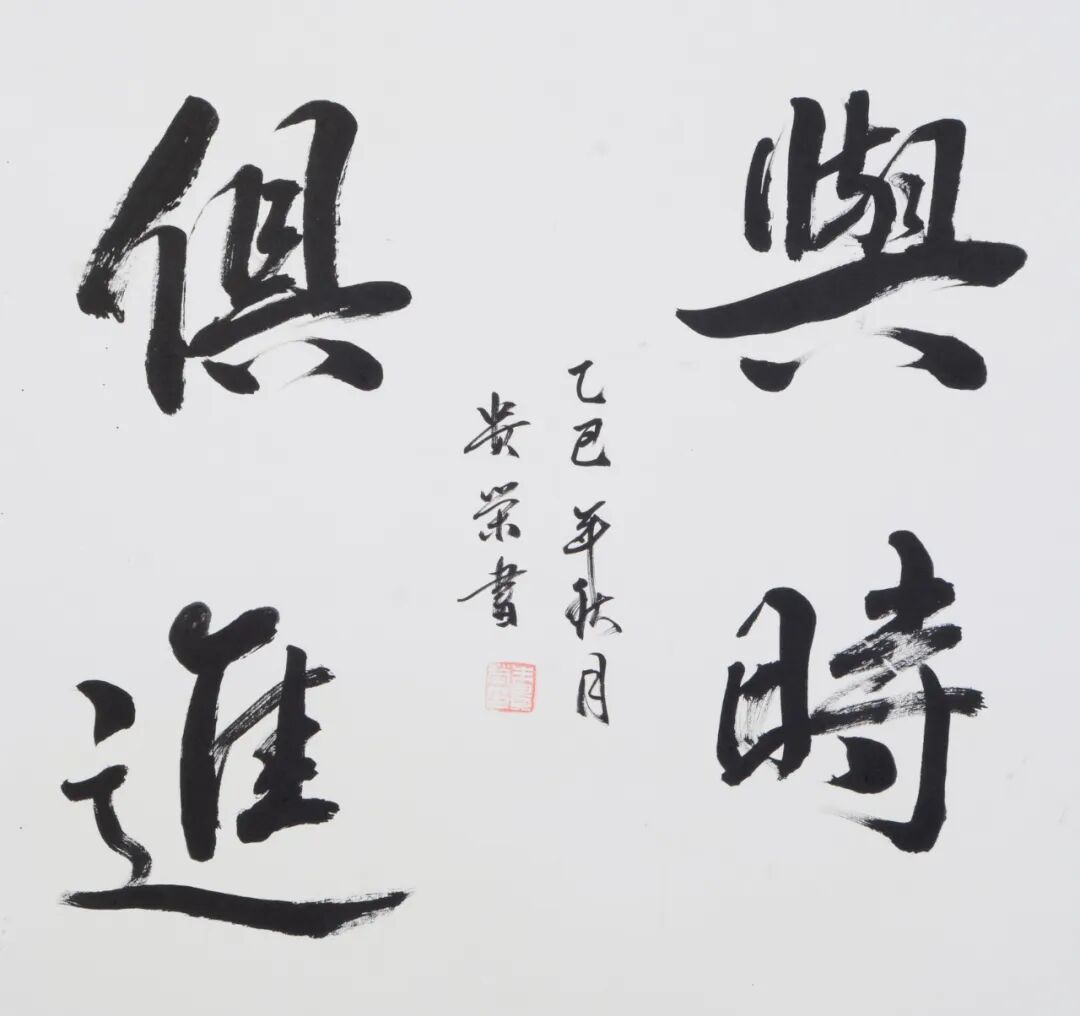 與時
俱進
乙巳年秋月
贵荣書